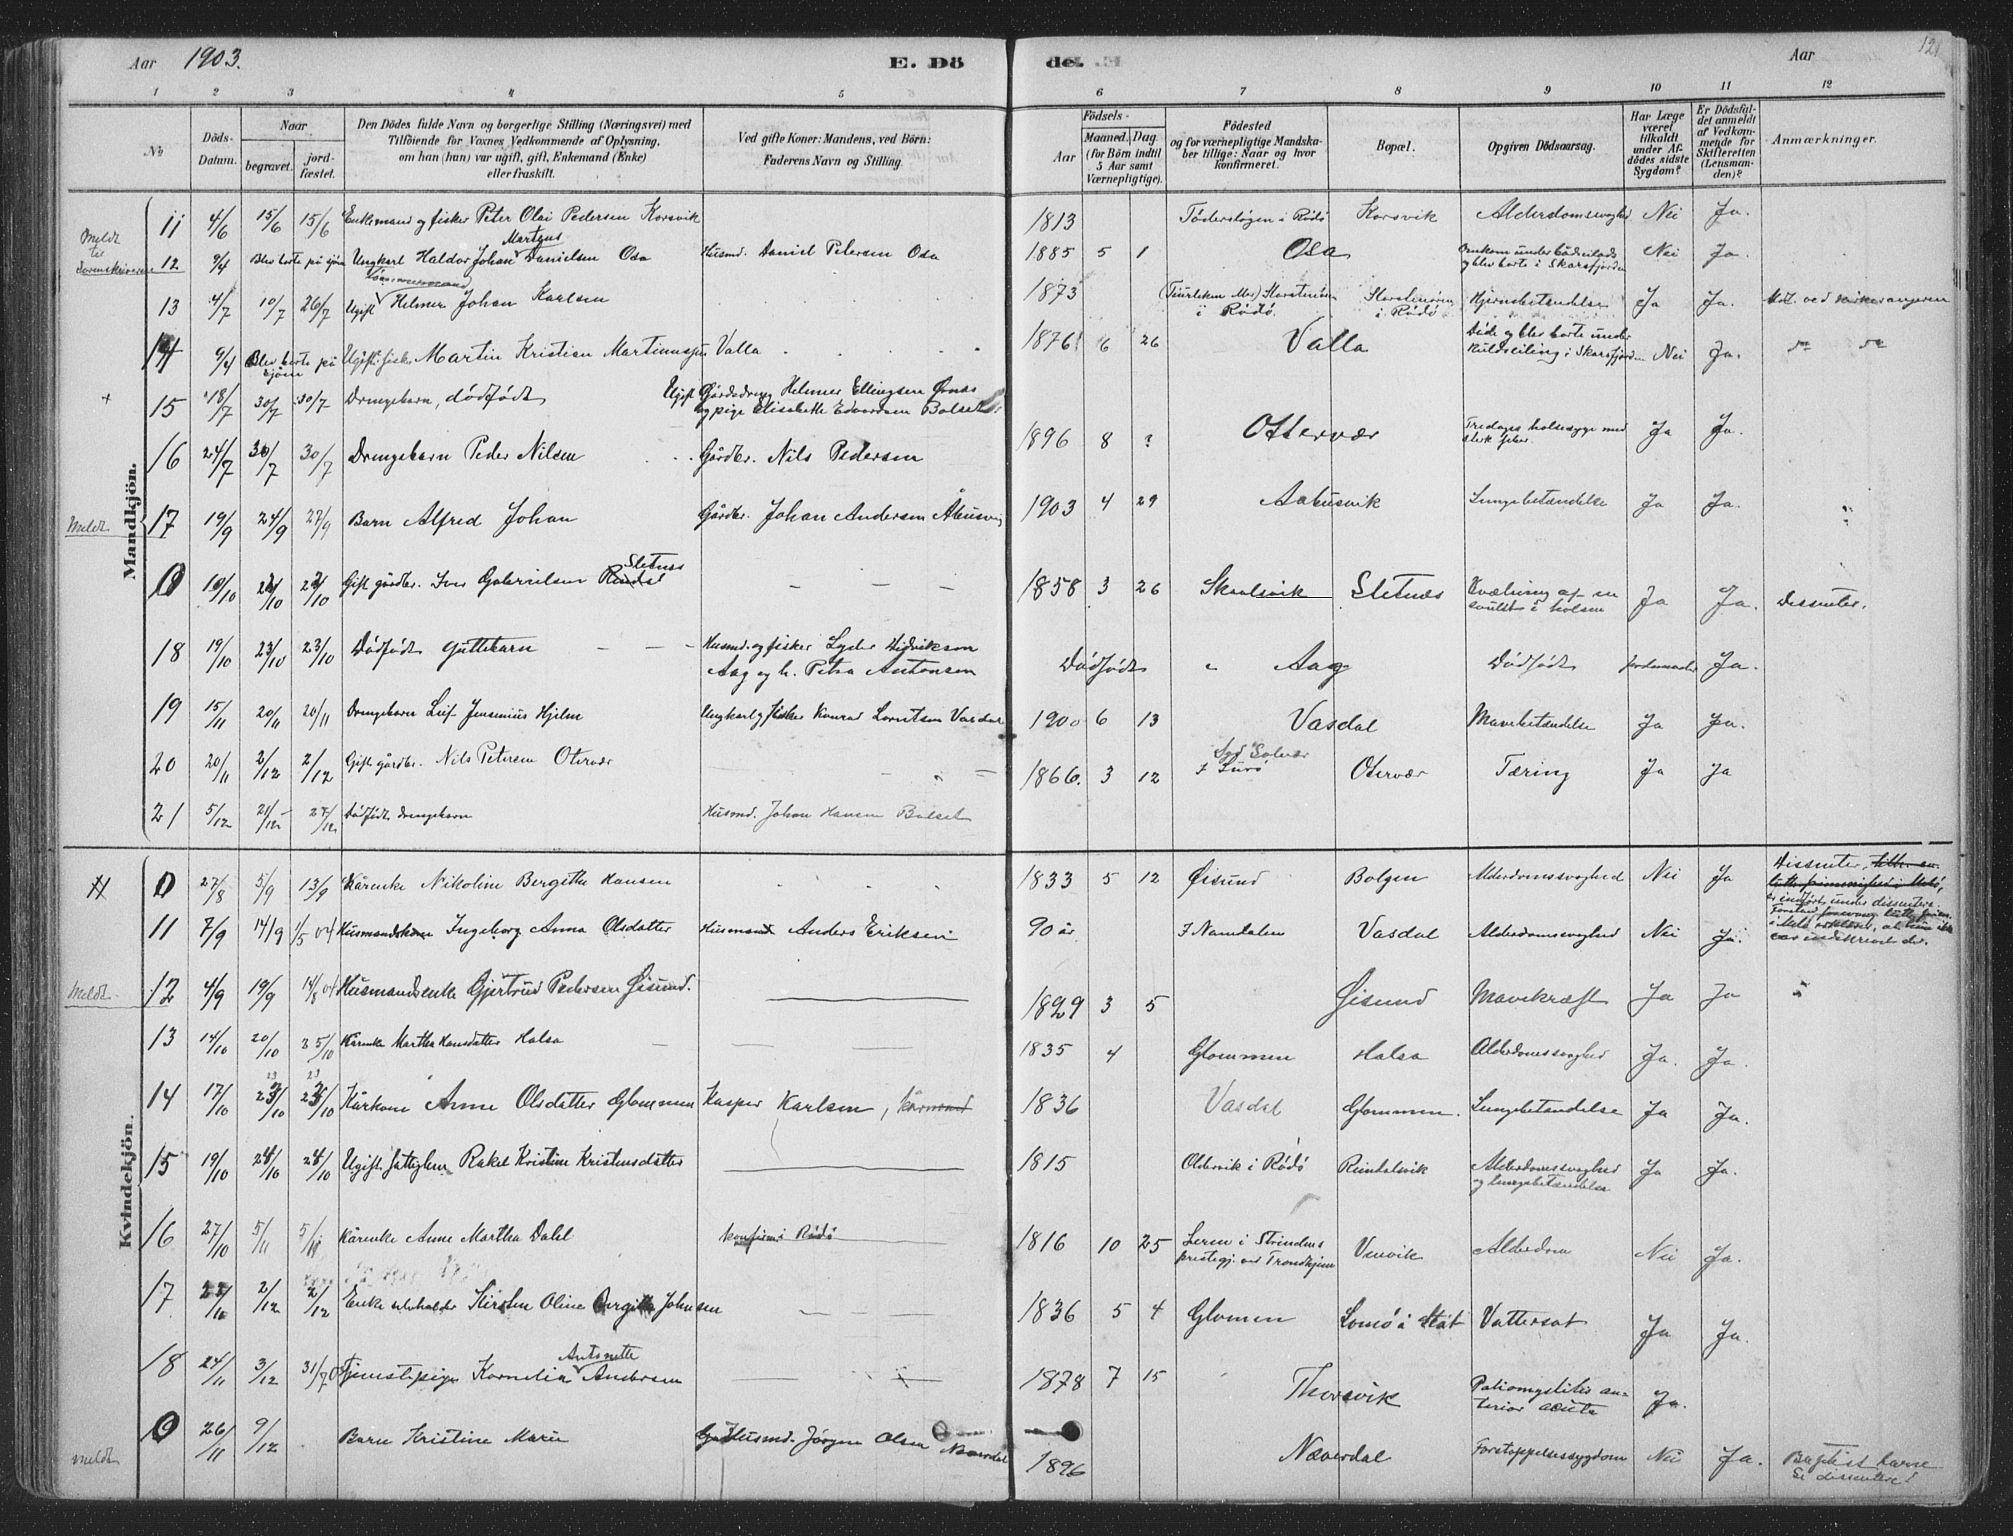 Aar 1903. E. Dö
1 2 3 4 5
No Döds-Datum. Naar begravet. jord-fæstet. Den Dödes fulde Navn og borgerlige Stilling (Næringsvei) med
Tilföiende för Voxnes Vedkommende af Oplysning,
om han (hun) var ugift, gift, Enkemand (Enke)
eller fraskilt. Ved gifte Koner: Mandens, ved Börn:
Faderens Navn og Stilling.
Mandkjön.
11 4/6 15/6 15/6 Enkemand og fisker Peter Olai Pedersen Korsvik
Meldt til Sorenskriveren
12 9/4 Blev borte på sjøen Ungkarl Haldor Johan Martinus Danielsen Osa Husmd. Daniel Petersen Osa
13 4/7 10/7 26/7 Ugift Helmer Johan Karlsen
14 9/4 Blev borte på sjøen Ugift fisker Martin Kristian Martinussen Valla
+ 15 18/7 30/7 30/7 Drengebarn, dødfødt Ugift Gårdsdreng Helmer Ellingsen Ørnes
og pige Elisabeth Edvardsen Bolset
16 24/7 30/7 30/7 Drengebarn Peder Nilsen Gårdbr. Nils Pedersen
Meldt 17 19/9 24/9 27/9 Barn Alfred Johan Gårdbr. Johan Andersen Åhusvig
0 10/10 24/10 24/10 Gift gårdbr. Iver Gabrielsen Sletnæs
18 19/10 23/10 23/10 Dødfødt guttebarn Husmd. og fisker Lyder Didrikson
Aag og h. Petra Antonsen
19 15/11 20/11 20/11 Drengebarn Leif Jensenius Hjelm Ungkarl og fisker Konrad Lorntsen Vasdal
20 20/11 2/12 2/12 Gift gårdbr. Nils Petersen Otervær
21 5/12 21/12 27/12 Dødfødt drengebarn Husmd. Johan Hansen Bolset
Kvindekjön.
0 27/8 5/9 13/9 Kårenke Nikoline Bergithe Hansen
11 7/9 14/9 1/5 04 Husmandskone Ingeborg Anna Olsdatter Husmand Anders Eriksen
Meldt 12 4/9 19/9 14/8 04 Husmandsenke Gjertrud Pedersen Øisund.
13 14/10 20/10 25/10 Kårenke Martha Hansdatter Halsa
14 17/10 23/10 23/10 Kårkone Anne Olsdatter Glommen Kasper Karlsen, kårmand
15 19/10 24/10 24/10 Ugift fattiglem Rakel Kristine Kristensdatter
16 27/10 5/11 5/11 Kårenke Anne Martha Dahl konfirm i Rødø
17 27/11 2/12 2/12 Enke Kirsten Oline Bergitte Johnsen
18 24/11 3/12 31/7 Tjenestepige Kornelia Antonette Andersen
meldt 0 26/11 9/12 Barn Kristine Marie Husmd. Jørgen Olsen Næverdal
de. Aar 121
6 7 8 9 10 11 12
Födsels-
Aar Maaned. Dag.
(for Börn indtil
5 Aar samt
Værnepligtige). Födested
og for værnepligtige Mandska-
ber tillige: Naar og hvor
konfirmeret. Bopæl. Opgiven Dödsaarsag. Har Læge
været
tilkaldt
under Af-
dödes sidste
Sygdom? Er Dödsfal-
det anmeldt
af Vedkom-
mende for
Skifteretten
(Lensman-
den)? Anmærkninger.
1813 i Rødø Korsvik Alderdomssvaghed Nei Ja.
1885 5 1 Osa Omkom under bådseilads
og blev borte i Skarsfjorden Nei Ja.
1873 Storstenøren
i Rødø Storstenøren
i Rødø Hjernebetændelse Ja Ja.
1876 6 26 Valla Døde og blev borte under
kuldseiling i Skarsfjorden Nei Ja.
1896 8 ? Ottervær Tredages halssyge med
sterk feber Ja Ja.
1903 4 29 Aahusvik Lungebetændelse Ja Ja.
1858 3 26 Skaalsvik Sletnæs Kvælning af en
svulst i halsen Ja Ja. Dissenter.
Dødfødt Aag Dødfødt Jordemoder Ja.
1900 6 13 Vasdal Mavebetændelse Ja Ja.
1866. 3 12 Syd Solvær
I Lurø Otervær Tæring Ja Ja
1833 5 12 Øisund Bolgen Alderdomssvaghed Nei Ja Dissenter,
er indført under dissentere.
90 år I Namdalen Vasdal Alderdomssvaghed Nei Ja.
1829 3 5 Øisund Mavekræft Ja Ja
1835 4 Glommen Halsa Alderdomssvaghed Ja. Ja.
1836 Vasdal Glommen. Lungebetændelse Ja Ja.
1815 Oldervik i Rødø Reindalsvik Alderdomssvaghed
og lungebetændelse Ja Ja.
1816 10 25 Leren i Strindens
prestegj. ved Trondhjem Vasvik Alderdom Nei Ja.
1836 5 4 Glomen Lomø i Støt Vattersot Ja Ja.
1878 7 15 Thorsvik Poliomyelitis an-
terior acuta Ja.
1896 Næverdal Forstoppelsessygdom Nei Ja. Baptist barn
Ei dissentere!